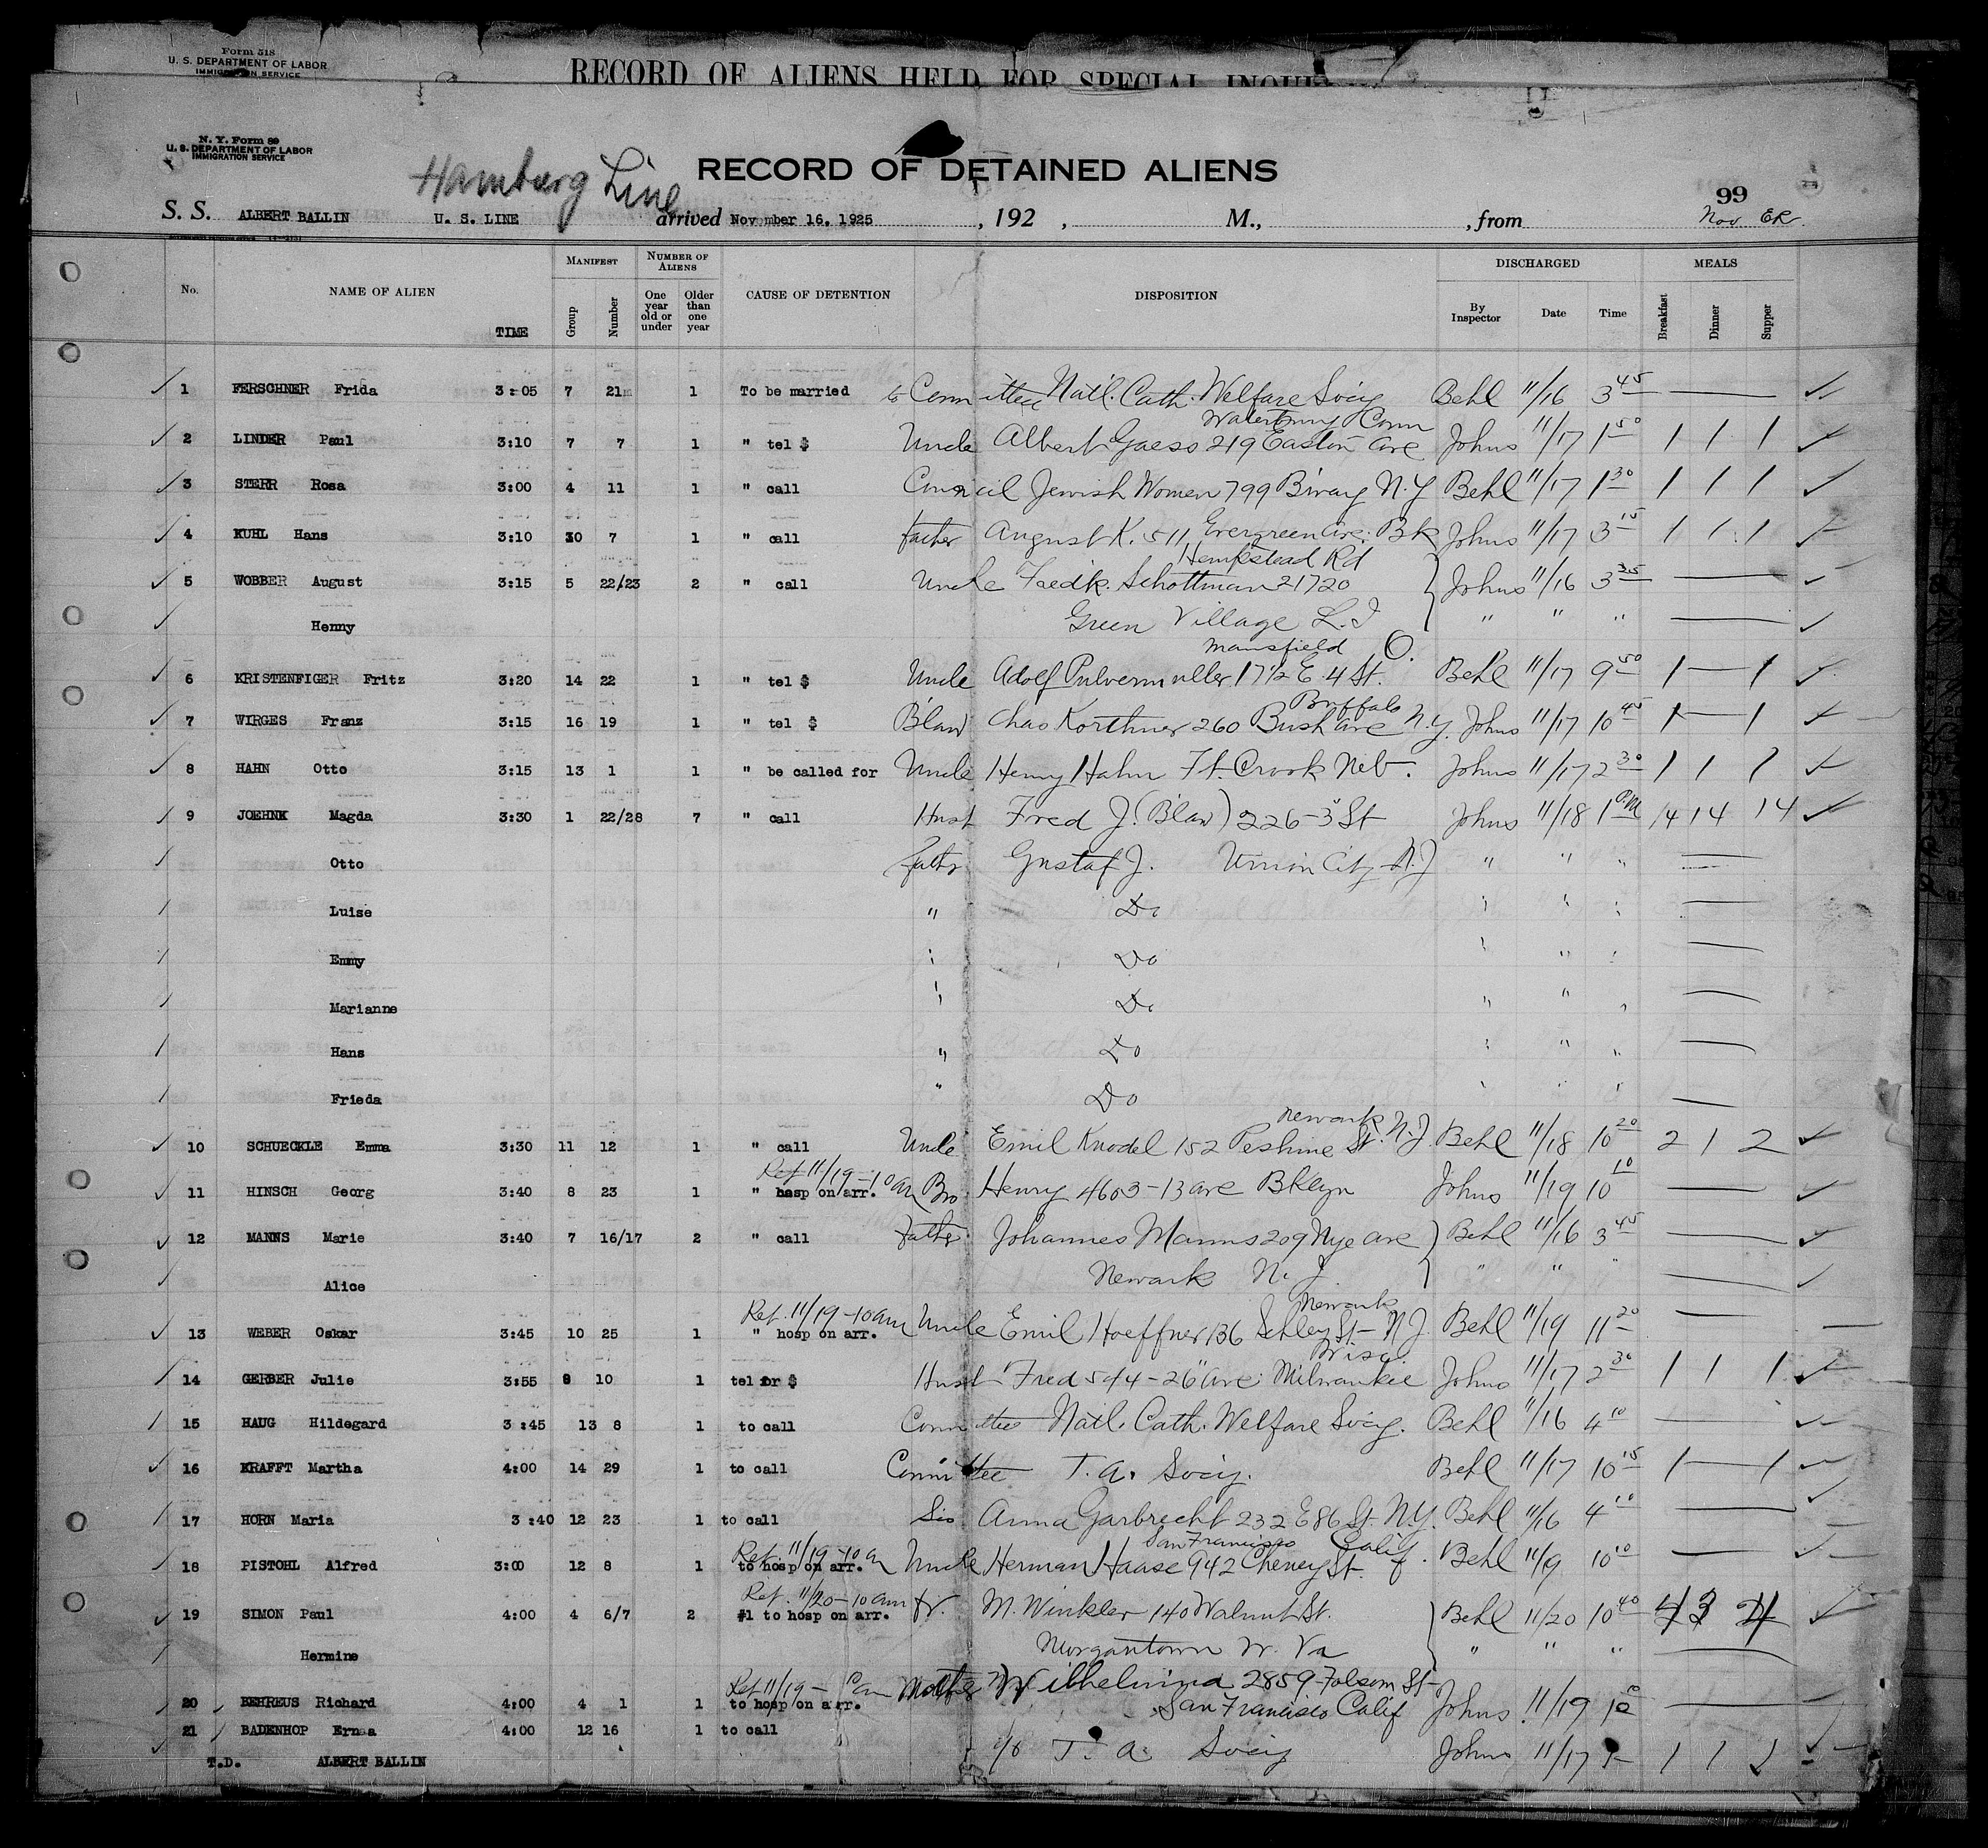 Form 518
U. S. DEPARTMENT OF LABOR
IMMIGRATION SERVICE
RECORD OF ALIENS HELD FOR SPECIAL
N. Y. Form 89
U. S. DEPARTMENT OF LABOR
IMMIGRATION SERVICE
Hamburg Line
RECORD OF DETAINED ALIENS
99
S. S. ALBERT BALLIN U. S. LINE arrived November 16, 1925 , 192 , M., , from Nov ER
No. NAME OF ALIEN TIME MANIFEST Group Number NUMBER OF ALIENS One year old or under Older than one year CAUSE OF DETENTION DISPOSITION DISCHARGED By Inspector Date Time MEALS Breakfast Dinner Supper
1 FERSCHNER Frida 3:05 7 21 1 To be married to Committee Natl. Cath. Welfare Socy Behl 11/16 3 45
Waterbury Conn
2 LINDER Paul 3:10 7 7 1 " tel $ Uncle Albert Gaess 219 Easton Ave Johns 11/17 1 50 1 1 1
3 STERR Rosa 3:00 4 11 1 " call Council Jewish Women 799 B'way N.Y Behl 11/17 1 30 1 1 1
4 KUHL Hans 3:10 30 7 1 " call father August K. 511 Evergreen Ave. Bk Johns 11/17 3 15 1 1 1
Hempstead Rd
5 WOBBER August 3:15 5 22/23 2 " call Uncle Fredk. Schottman 21720 Johns 11/16 3 35
Henny Green Village L.I " " "
Mansfield O.
6 KRISTENFIGER Fritz 3:20 14 22 1 " tel $ Uncle Adolf Pulvermuller 17½ E 4 St. Behl 11/17 9 50 1 — 1
Buffalo
7 WIRGES Franz 3:15 16 19 1 " tel $ B'law Chas Korthner 260 Bush Ave N.Y. Johns 11/17 10 45 1 — 1
8 HAHN Otto 3:15 13 1 1 " be called for Uncle Henry Hahn Ft. Crook Neb. Johns 11/17 2 30 1 1 1
9 JOEHNK Magda 3:30 1 22/28 7 " call Husb Fred J. (B'law) 226-3" St Johns 11/18 1 PM 14 14 14
Otto Fathr Gustaf J. Union City N.J " " "
Luise " Do " " "
Emmy " Do " " "
Marianne " Do " " "
Hans " Do " " "
Frieda " Do " " "
Newark
10 SCHUECKLE Emma 3:30 11 12 1 " call Uncle Emil Knodel 152 Peshine St. N.J. Behl 11/18 10 20 2 1 2
Ret 11/19-10 am
11 HINSCH Georg 3:40 8 23 1 " hosp on arr. Bro. Henry 4603-13 Ave Bklyn Johns 11/19 10 10
12 MANNS Marie 3:40 7 16/17 2 " call Father Johannes Manns 209 Nye Ave Behl 11/16 3 45
Alice Newark N. J. " " "
Ret. 11/19-10 am Newark
13 WEBER Oskar 3:45 10 25 1 " hosp on arr. Uncle Emil Hoeffner 136 Schley St- N J. Behl 11/19 11 20
Wisc.
14 GERBER Julie 3:55 8 10 1 tel for $ Husb Fred 544-26" Ave. Milwaukee Johns 11/17 2 30 1 1 1
15 HAUG Hildegard 3:45 13 8 1 to call Committee Natl. Cath. Welfare Socy. Behl 11/16 4 10
16 KRAFFT Martha 4:00 14 29 1 to call Committee T. A. Socy. Behl 11/17 10 15 1 — 1
17 HORN Maria 3:40 12 23 1 to call Sis Anna Garbrecht 232 E 86 St. N.Y. Behl 11/16 4 10
Ret. 11/19-10 a San Francisco Calif.
18 PISTOHL Alfred 3:00 12 8 1 to hosp on arr. Uncle Herman Haase 942 Cheney St. Behl 11/9 10 10
Ret. 11/20-10 am
19 SIMON Paul 4:00 4 6/7 2 #1 to hosp on arr. fr. M. Winkler 140 Walnut St. Behl 11/20 10 40 4 3 4
Hermine Morgantown W. Va " " "
Ret 11/19- Mother Wilhelmina 2859 Folsom St-
20 BEHREUS Richard 4:00 4 1 1 to hosp on arr. San Francisco Calif Johns 11/19 10
21 BADENHOP Erna 4:00 12 16 1 to call
T.D. ALBERT BALLIN c/o T. A. Socy Johns 11/17 1 1 1